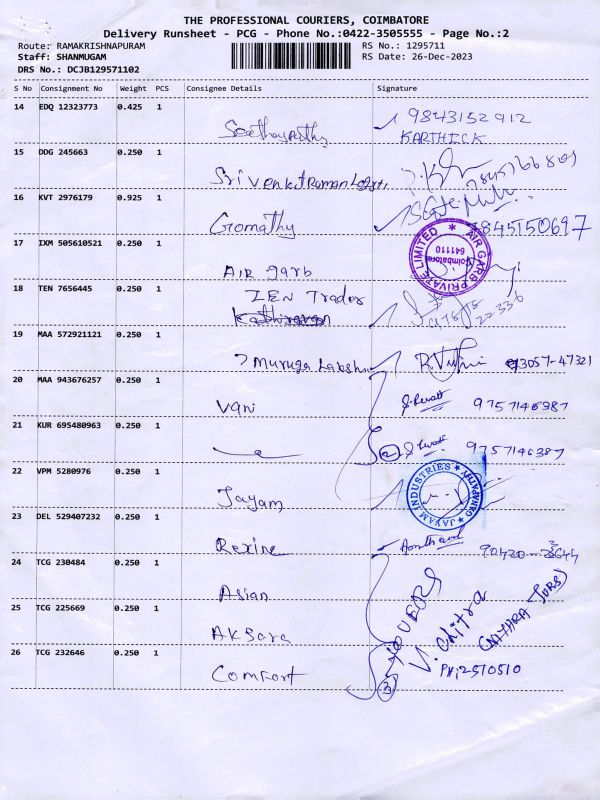 THE PROFESSIONAL COURIERS, COIMBATORE
Delivery Runsheet - PCG - Phone No.:0422-3505555 - Page No.:2
Route: RAMAKRISHNAPURAM
RS No.: 1295711
Staff: SHANMUGAM
RS Date: 26-Dec-2023
DRS No.: DCJB129571102
S No Consignment No Weight PCS Consignee Details Signature
14 EDQ 12323773 0.425 1
9843152912
KARTHICK
15 DDG 245663 0.250 1
Sri Venkat Raman
16 KVT 2976179 0.925 1
Gomathy
9845150697
17 IXM 505610521 0.250 1
AIR garb
AIR GARB PRIVATE LIMITED
Coimbatore
641110
18 TEN 7656445 0.250 1
ZEN Trader
22336
19 MAA 572921121 0.250 1
Muruga Lakshm
93057-47321
20 MAA 943676257 0.250 1
Vani
9757146387
21 KUR 695480963 0.250 1
2
9757146387
22 VPM 5280976 0.250 1
Jayam
JAYAM INDUSTRIES
GANAPATHY
23 DEL 529407232 0.250 1
Rexine
24 TCG 230484 0.250 1
Asian
25 TCG 225669 0.250 1
Aksara
V. Chitra
26 TCG 232646 0.250 1
Comfort
PH:2510510
3